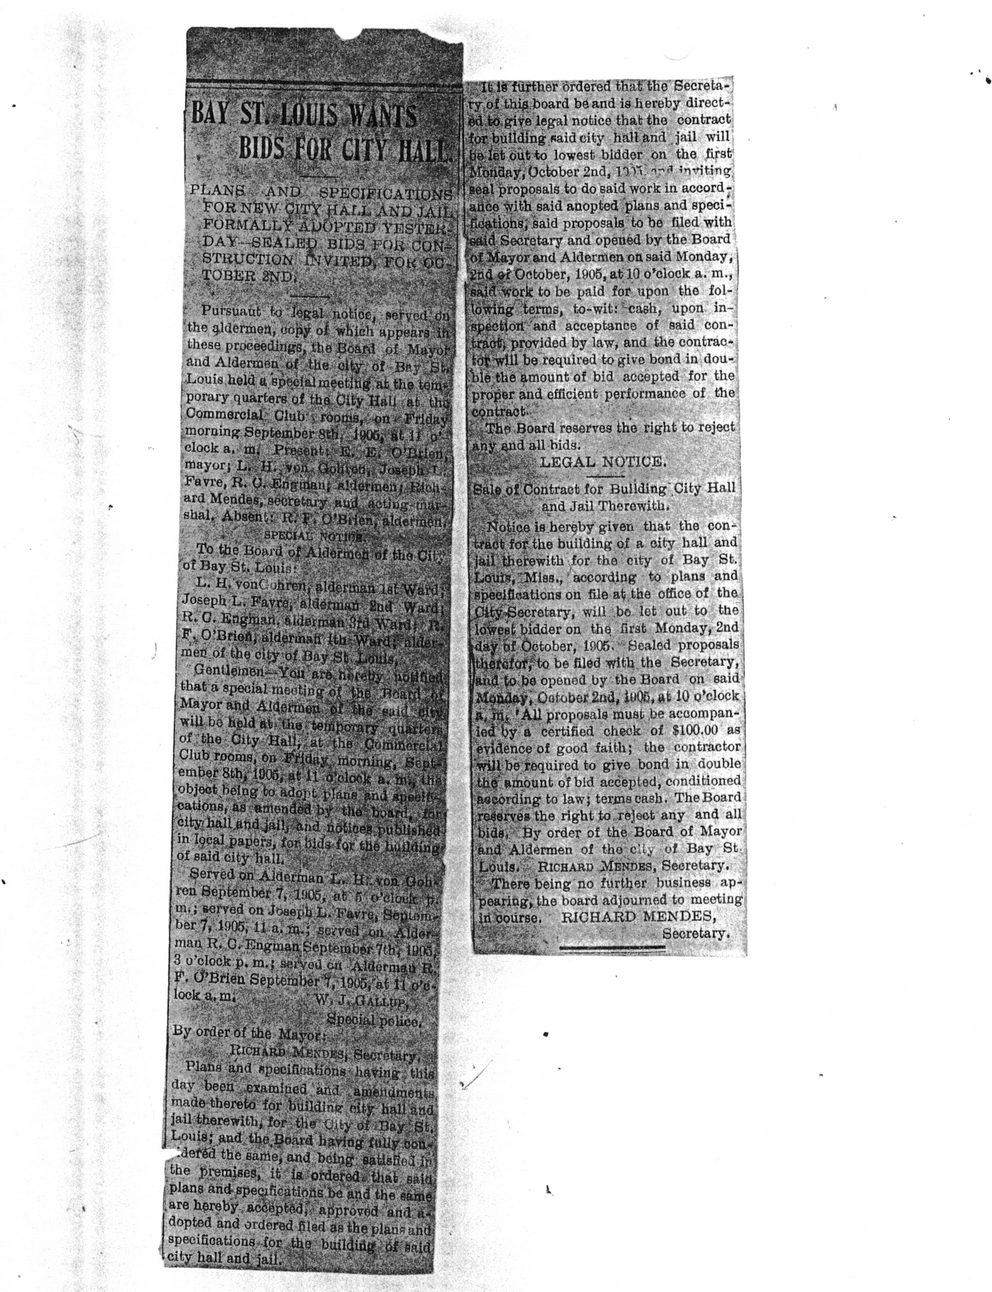 BAY ST. LOUIS WANTS
BIDS FOR CITY HALL
PLANS AND SPECIFICATIONS
FOR NEW CITY HALL AND JAIL
FORMALLY ADOPTED YESTER-
DAY—SEALED BIDS FOR CON-
STRUCTION INVITED, FOR OC-
TOBER 2ND.
Pursuant to legal notice, served on
the aldermen, copy of which appears in
these proceedings, the Board of Mayor
and Aldermen of the city of Bay St.
Louis held a special meeting at the tem-
porary quarters of the City Hall at the
Commercial Club rooms, on Friday
morning September 8th, 1905, at 11 o'-
clock a. m. Present: E. E. O'Brien,
mayor; L. H. von Gohren, Joseph L.
Favre, R. C. Engman; aldermen; Rich-
ard Mendes, secretary and acting mar-
shal. Absent: R. F. O'Brien, aldermen.
SPECIAL NOTICE.
To the Board of Aldermen of the City
of Bay St. Louis:
L. H. vonGohren, alderman 1st Ward;
Joseph L. Favre, alderman 2nd Ward;
R. C. Engman, alderman 3rd Ward; R.
F. O'Brien, alderman 4th Ward; alder-
men of the city of Bay St. Louis,
Gentlemen—You are hereby notified
that a special meeting of the Board of
Mayor and Aldermen of the said city
will be held at the temporary quarters
of the City Hall, at the Commercial
Club rooms, on Friday morning, Sept-
ember 8th, 1905, at 11 o'clock a. m., the
object being to adopt plans and specifi-
cations, as amended by the board, for
city hall and jail, and notices published
in local papers, for bids for the building
of said city hall.
Served on Alderman L. H. von Goh-
ren September 7, 1905, at 5 o'clock p.
m.; served on Joseph L. Favre, Septem-
ber 7, 1905, 11 a. m.; served on Alder-
man R. C. Engman September 7th, 1905,
3 o'clock p. m.; served on Alderman R.
F. O'Brien September 7, 1905, at 11 o'c-
lock a. m. W. J. GALLUP,
Special police.
By order of the Mayor:
RICHARD MENDES, Secretary.
Plans and specifications having this
day been examined and amendments
made thereto for building city hall and
jail therewith, for the City of Bay St.
Louis; and the Board having fully con-
dered the same, and being satisfied in
the premises, it is ordered that said
plans and specifications be and the same
are hereby accepted, approved and a-
dopted and ordered filed as the plans and
specifications for the building of said
city hall and jail.
It is further ordered that the Secreta-
ry of this board be and is hereby direct-
ed to give legal notice that the contract
for building said city hall and jail will
be let out to lowest bidder on the first
Monday, October 2nd, and inviting
seal proposals to do said work in accord-
ance with said anopted plans and speci-
fications, said proposals to be filed with
said Secretary and opened by the Board
of Mayor and Aldermen on said Monday,
2nd of October, 1905, at 10 o'clock a. m.,
said work to be paid for upon the fol-
lowing terms, to-wit: cash, upon in-
spection and acceptance of said con-
tract, provided by law, and the contrac-
tor will be required to give bond in dou-
ble the amount of bid accepted for the
proper and efficient performance of the
contract.
The Board reserves the right to reject
any and all bids.
LEGAL NOTICE.
Sale of Contract for Building City Hall
and Jail Therewith.
Notice is hereby given that the con-
tract for the building of a city hall and
jail therewith for the city of Bay St.
Louis, Miss., according to plans and
specifications on file at the office of the
City Secretary, will be let out to the
lowest bidder on the first Monday, 2nd
day of October, 1905. Sealed proposals
therefor, to be filed with the Secretary,
and to be opened by the Board on said
Monday, October 2nd, 1905, at 10 o'clock
a. m. All proposals must be accompan-
ied by a certified check of $100.00 as
evidence of good faith; the contractor
will be required to give bond in double
the amount of bid accepted, conditioned
according to law; terms cash. The Board
reserves the right to reject any and all
bids. By order of the Board of Mayor
and Aldermen of the city of Bay St.
Louis. RICHARD MENDES, Secretary.
There being no further business ap-
pearing, the board adjourned to meeting
in course. RICHARD MENDES,
Secretary.